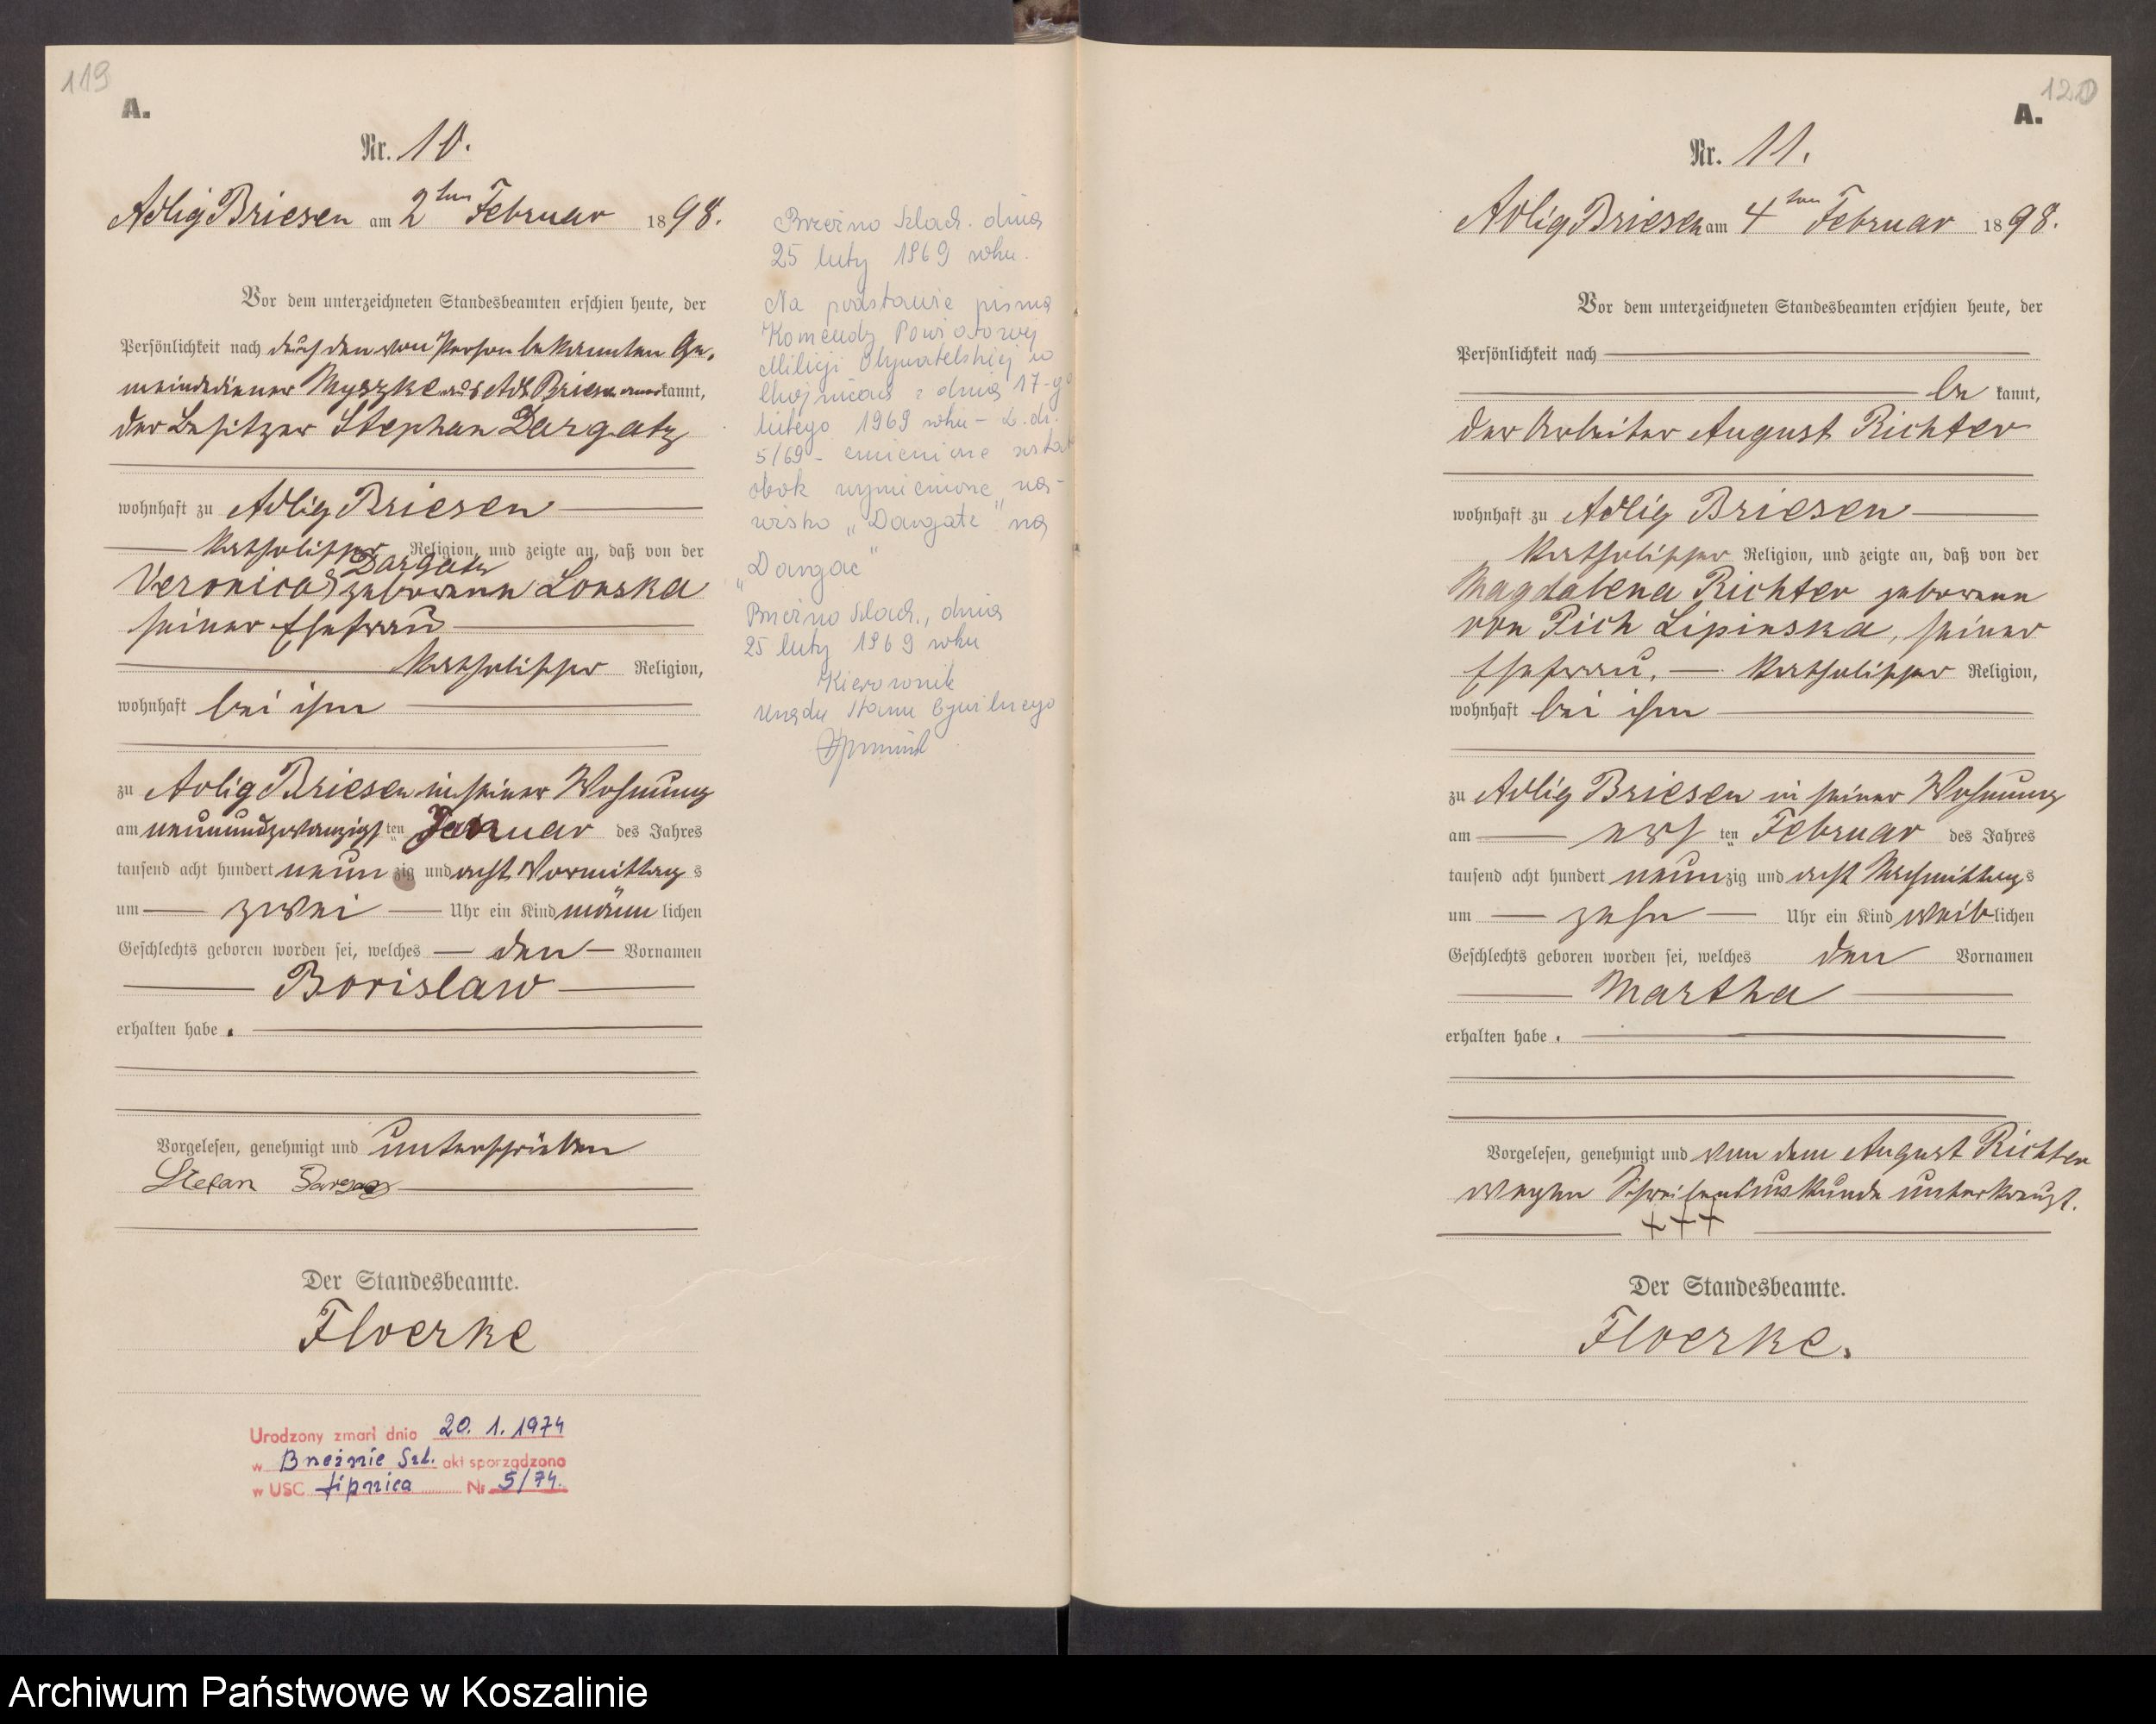 119
A.
Nr. 10.
Adlig Briesen am 2ten Februar 1898.
Vor dem unterzeichneten Standesbeamten erschien heute, der
Persönlichkeit nach durch den von Person bekannten Ge-
meindediener Myszke aus Adl. Briesen anerkannt,
der Besitzer Stephan Dargatz
wohnhaft zu Adlig Briesen
katholischer Religion, und zeigte an, daß von der
Dargatz
Veronica geborenen Lonska
seiner Ehefrau
katholischer Religion,
wohnhaft bei ihm
zu Adlig Briesen in seiner Wohnung
am neunundzwanzigsten Januar des Jahres
tausend acht hundert neunzig und acht Vormittags
um zwei Uhr ein Kind männlichen
Geschlechts geboren worden sei, welches den Vornamen
Borislaw
erhalten habe.
Vorgelesen, genehmigt und unterschrieben
Stefan
Der Standesbeamte.
Floerke
Urodzony zmarł dnia 20. 1. 1974
w Brzeźnie Szl. akt sporządzono
w USC Lipnica Nr 5/74.
Brzeźno Szlach. dnia
25 luty 1969 roku.
Na podstawie pisma
Komendy Powiatowej
Milicji Obywatelskiej w
Chojnicach z dnia 17-go
lutego 1969 roku - L. dz.
5/69 - zmienione
obok wymienione naz-
wisko "Dargatz" na
"Dargac"
Brzeźno Szlach., dnia
25 luty 1969 roku
Kierownik
Urzędu Stanu Cywilnego
120
A.
Nr. 11.
Adlig Briesen am 4ten Februar 1898.
Vor dem unterzeichneten Standesbeamten erschien heute, der
Persönlichkeit nach
bekannt,
der Arbeiter August Richter
wohnhaft zu Adlig Briesen
katholischer Religion, und zeigte an, daß von der
Magdalena Richter geborenen
von Pich Lipinska, seiner
Ehefrau, katholischer Religion,
wohnhaft bei ihm
zu Adlig Briesen in seiner Wohnung
am ersten Februar des Jahres
tausend acht hundert neunzig und acht Nachmittags
um zehn Uhr ein Kind weiblichen
Geschlechts geboren worden sei, welches den Vornamen
Martha
erhalten habe.
Vorgelesen, genehmigt und von dem August Richter
wegen Schreibensunkunde unterkreuzt.
+++
Der Standesbeamte.
Floerke.
Archiwum Państwowe w Koszalinie